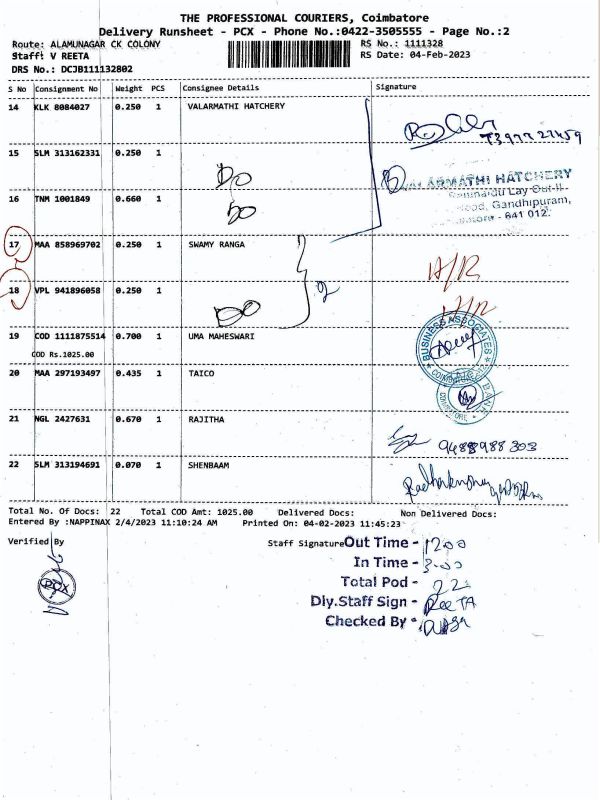 THE PROFESSIONAL COURIERS, Coimbatore
Delivery Runsheet - PCX - Phone No.:0422-3505555 - Page No.:2
Route: ALAMUNAGAR CK COLONY RS No.: 1111328
Staff: V REETA RS Date: 04-Feb-2023
DRS No.: DCJB111132802
S No Consignment No Weight PCS Consignee Details Signature
14 KLK 8084027 0.250 1 VALARMATHI HATCHERY
15 SLM 313162331 0.250 1
Do
VALARMATHI HATCHERY
16 TNM 1001849 0.660 1
Do
Gandhipuram,
641 012.
17 MAA 858969702 0.250 1 SWAMY RANGA
A/R
18 VPL 941896058 0.250 1
2
Do
19 COD 1111875514 0.700 1 UMA MAHESWARI
BUSINESS ASSOCIATES
COD Rs.1025.00
20 MAA 297193497 0.435 1 TAICO
21 NGL 2427631 0.670 1 RAJITHA
9488988303
22 SLM 313194691 0.070 1 SHENBAAM
Total No. Of Docs: 22 Total COD Amt: 1025.00 Delivered Docs: Non Delivered Docs:
Entered By :NAPPINAX 2/4/2023 11:10:24 AM Printed On: 04-02-2023 11:45:23
Verified By Staff Signature Out Time - 1200
In Time - 3.00
PCX
Total Pod - 22
Dly.Staff Sign - ReeTA
Checked By -